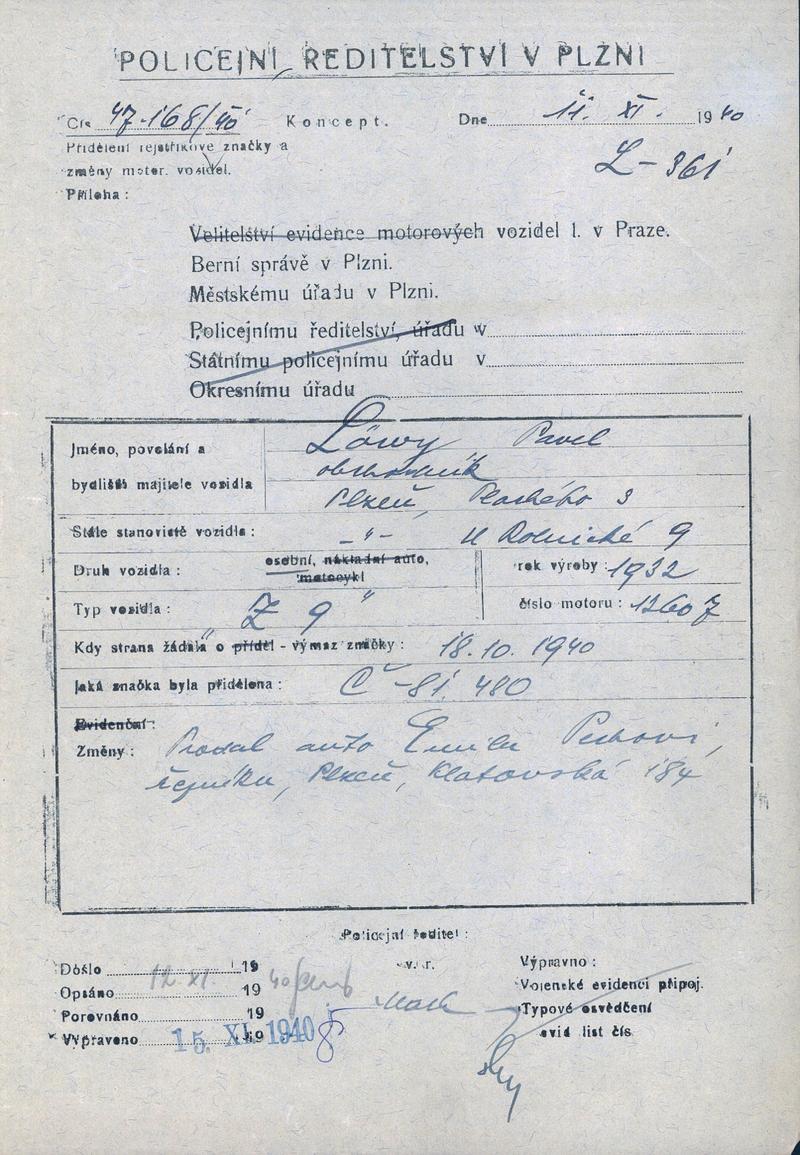 POLICEJNÍ ŘEDITELSTVÍ V PLZNI
Čís. 47-168/40 Koncept. Dne 11. XI. 1940
Přidělení rejstříkové značky a
změny motor. vozidel.
L-361
Příloha:
Velitelství evidence motorových vozidel I. v Praze.
Berní správě v Plzni.
Městskému úřadu v Plzni.
Policejnímu ředitelství, úřadu v
Státnímu policejnímu úřadu v
Okresnímu úřadu
Jméno, povolání a
bydliště majitele vozidla
Löwy Pavel
obchodník
Plzeň, Plachého 3
Stálé stanoviště vozidla: -"- U Rolnické 9
Druh vozidla: osobní, nákladní auto,
motocykl
rok výroby: 1932
Typ vozidla: "Z 9"
číslo motoru: 12607
Kdy strana žádala o příděl - výmaz značky: 18.10.1940
Jaká značka byla přidělena: Č-81.480
Evidenční:
Změny: Prodal auto Emilu Pechovi,
řezníku, Plzeň, Klatovská 184
Policejní ředitel:
v. r.
Došlo 19
Opsáno 12. XI. 1940
Porovnáno 19
Vypraveno 15. XI. 1940
Výpravno:
Vojenské evidenci připoj.
Typové osvědčení
evid list čís.